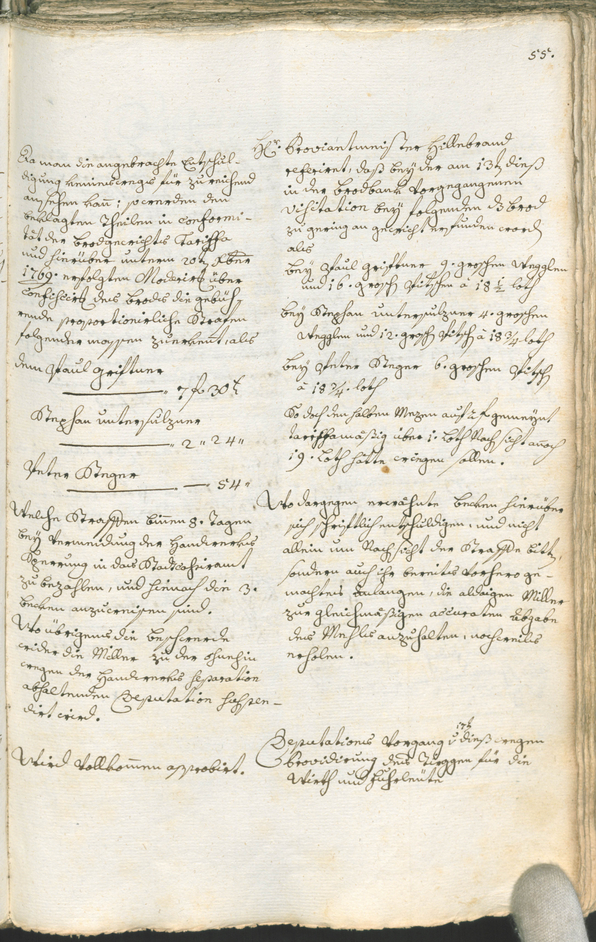 55.
Da man die angebrachte Entschul-
digung keineswegs für zureichend
ansehen kan; so werden den
beklagten Theilen in conformi-
tät der brodgerichts Tariffa
und hierüber unterm 20t
1769. erfolgten Moderirts über
Confiscirs des brodts die gebüh-
rende proportionirliche Strafen
folgender massen zuerkent, als
dem Paul Griffner
7 f 30 x
Stephan Untersulzner
2 " 24 "
Peter Steger
54 "
Welche Straffen binen 8. Tagen
bey Vermeidung der Handwerks
Sperrung in das Stadtsteiramt
zu bezahlen, und hienach die 3.
becken anzuweisen sind.
Wo übrigens die beschwerde
wider die Müller zu der ohnehin
wegen der Handwerks separation
abhaltenden Deputation suspen-
dirt wird.
Wird vollkommen approbirt.
Hr. Proviantmeister Hillebrand
referirt, daß bey der am 13t dieß
in der brodbank vorgegangenen
Visitation bey folgenden 3 brod
zu gering am gewicht erfunden word
als
bey Paul Griffner 9. groschen Weggen
und 16. grosch Vitschen à 18 1/2 loth
bey Stephan Untersulzner 4. groschen
Wegglen und 12. grosch Vitsch à 18 3/4 loth
bey Peter Steger 6. groschen Vitsch
à 18 3/4. loth
So doch den halben Mezen auf
tariffamäßig über 1. Loth Nachsicht annoch
19. Loth hätte wiegen sollen.
Wo dargegen erwehnte becken hierüber
sich schriftlich entschuldigen, und nicht
allein um Nachsicht der Straffe bitt,
sondern auch ihr bereits vorhero ge-
machtes anlangen, die alhigen Müller
zu gleichmäßigen accuraten Abgabe
des Mehls anzuhalten, nochmals
erholen.
Deputations Vorgang v. 17t dieß wegen
Providirung des Türggen für die
Wirth und Fuhrleute